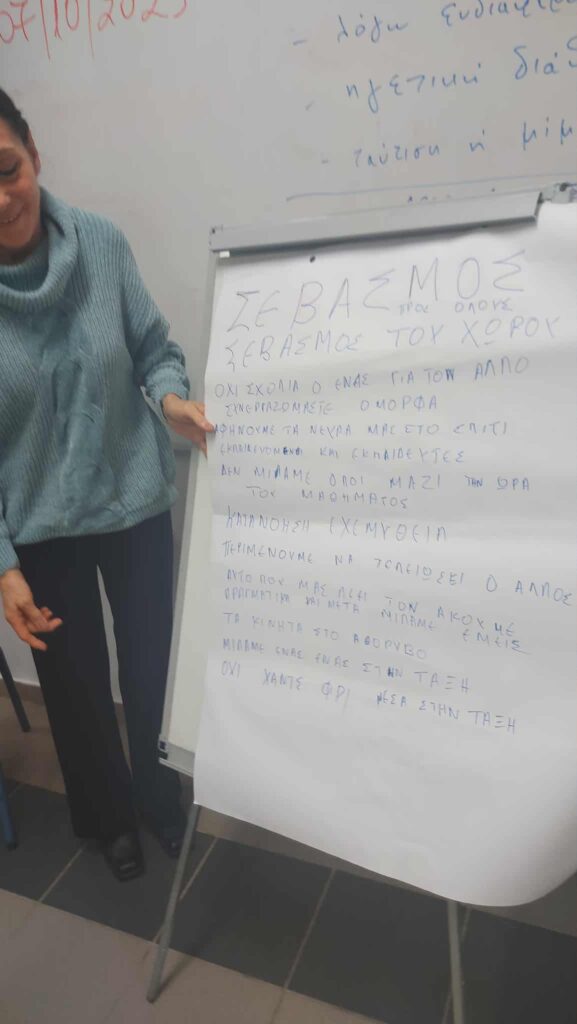 07/10/2025
- λόγω ενδιαφέρο
- ηγετική διάθ
- ταύτιση ή μίμ
ΣΕΒΑΣΜΟΣ
ΠΡΟΣ ΟΛΟΥΣ
ΣΕΒΑΣΜΟΣ ΤΟΥ ΧΩΡΟΥ
ΟΧΙ ΣΧΟΛΙΑ Ο ΕΝΑΣ ΓΙΑ ΤΟΝ ΑΛΛΟ
ΣΥΝΕΡΓΑΖΟΜΑΣΤΕ ΟΜΟΡΦΑ
ΑΦΗΝΟΥΜΕ ΤΑ ΝΕΥΡΑ ΜΑΣ ΣΤΟ ΣΠΙΤΙ
ΕΚΠΑΙΔΕΥΟΜΕΝΟΙ ΚΑΙ ΕΚΠΑΙΔΕΥΤΕΣ
ΔΕΝ ΜΙΛΑΜΕ ΟΛΟΙ ΜΑΖΙ ΤΗΝ ΩΡΑ
ΤΟΥ ΜΑΘΗΜΑΤΟΣ
ΚΑΤΑΝΟΗΣΗ ΕΧΕΜΥΘΕΙΑ
ΠΕΡΙΜΕΝΟΥΜΕ ΝΑ ΤΕΛΕΙΩΣΕΙ Ο ΑΛΛΟΣ
ΑΥΤΟ ΠΟΥ ΜΑΣ ΛΕΕΙ ΤΟΝ ΑΚΟΥΜΕ
ΠΡΑΓΜΑΤΙΚΑ ΚΑΙ ΜΕΤΑ ΜΙΛΑΜΕ ΕΜΕΙΣ
ΤΑ ΚΙΝΗΤΑ ΣΤΟ ΑΘΟΡΥΒΟ
ΜΙΛΑΜΕ ΕΝΑΣ ΕΝΑΣ ΣΤΗΝ ΤΑΞΗ
ΟΧΙ ΧΑΝΤΣ ΦΡΙ ΜΕΣΑ ΣΤΗΝ ΤΑΞΗ